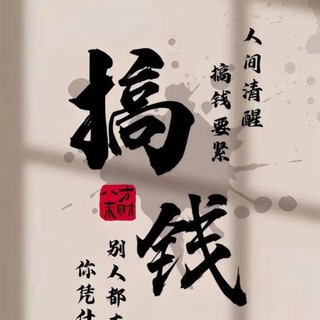 人间清醒
搞钱要紧
搞钱
八方来财
别人都
你凭什